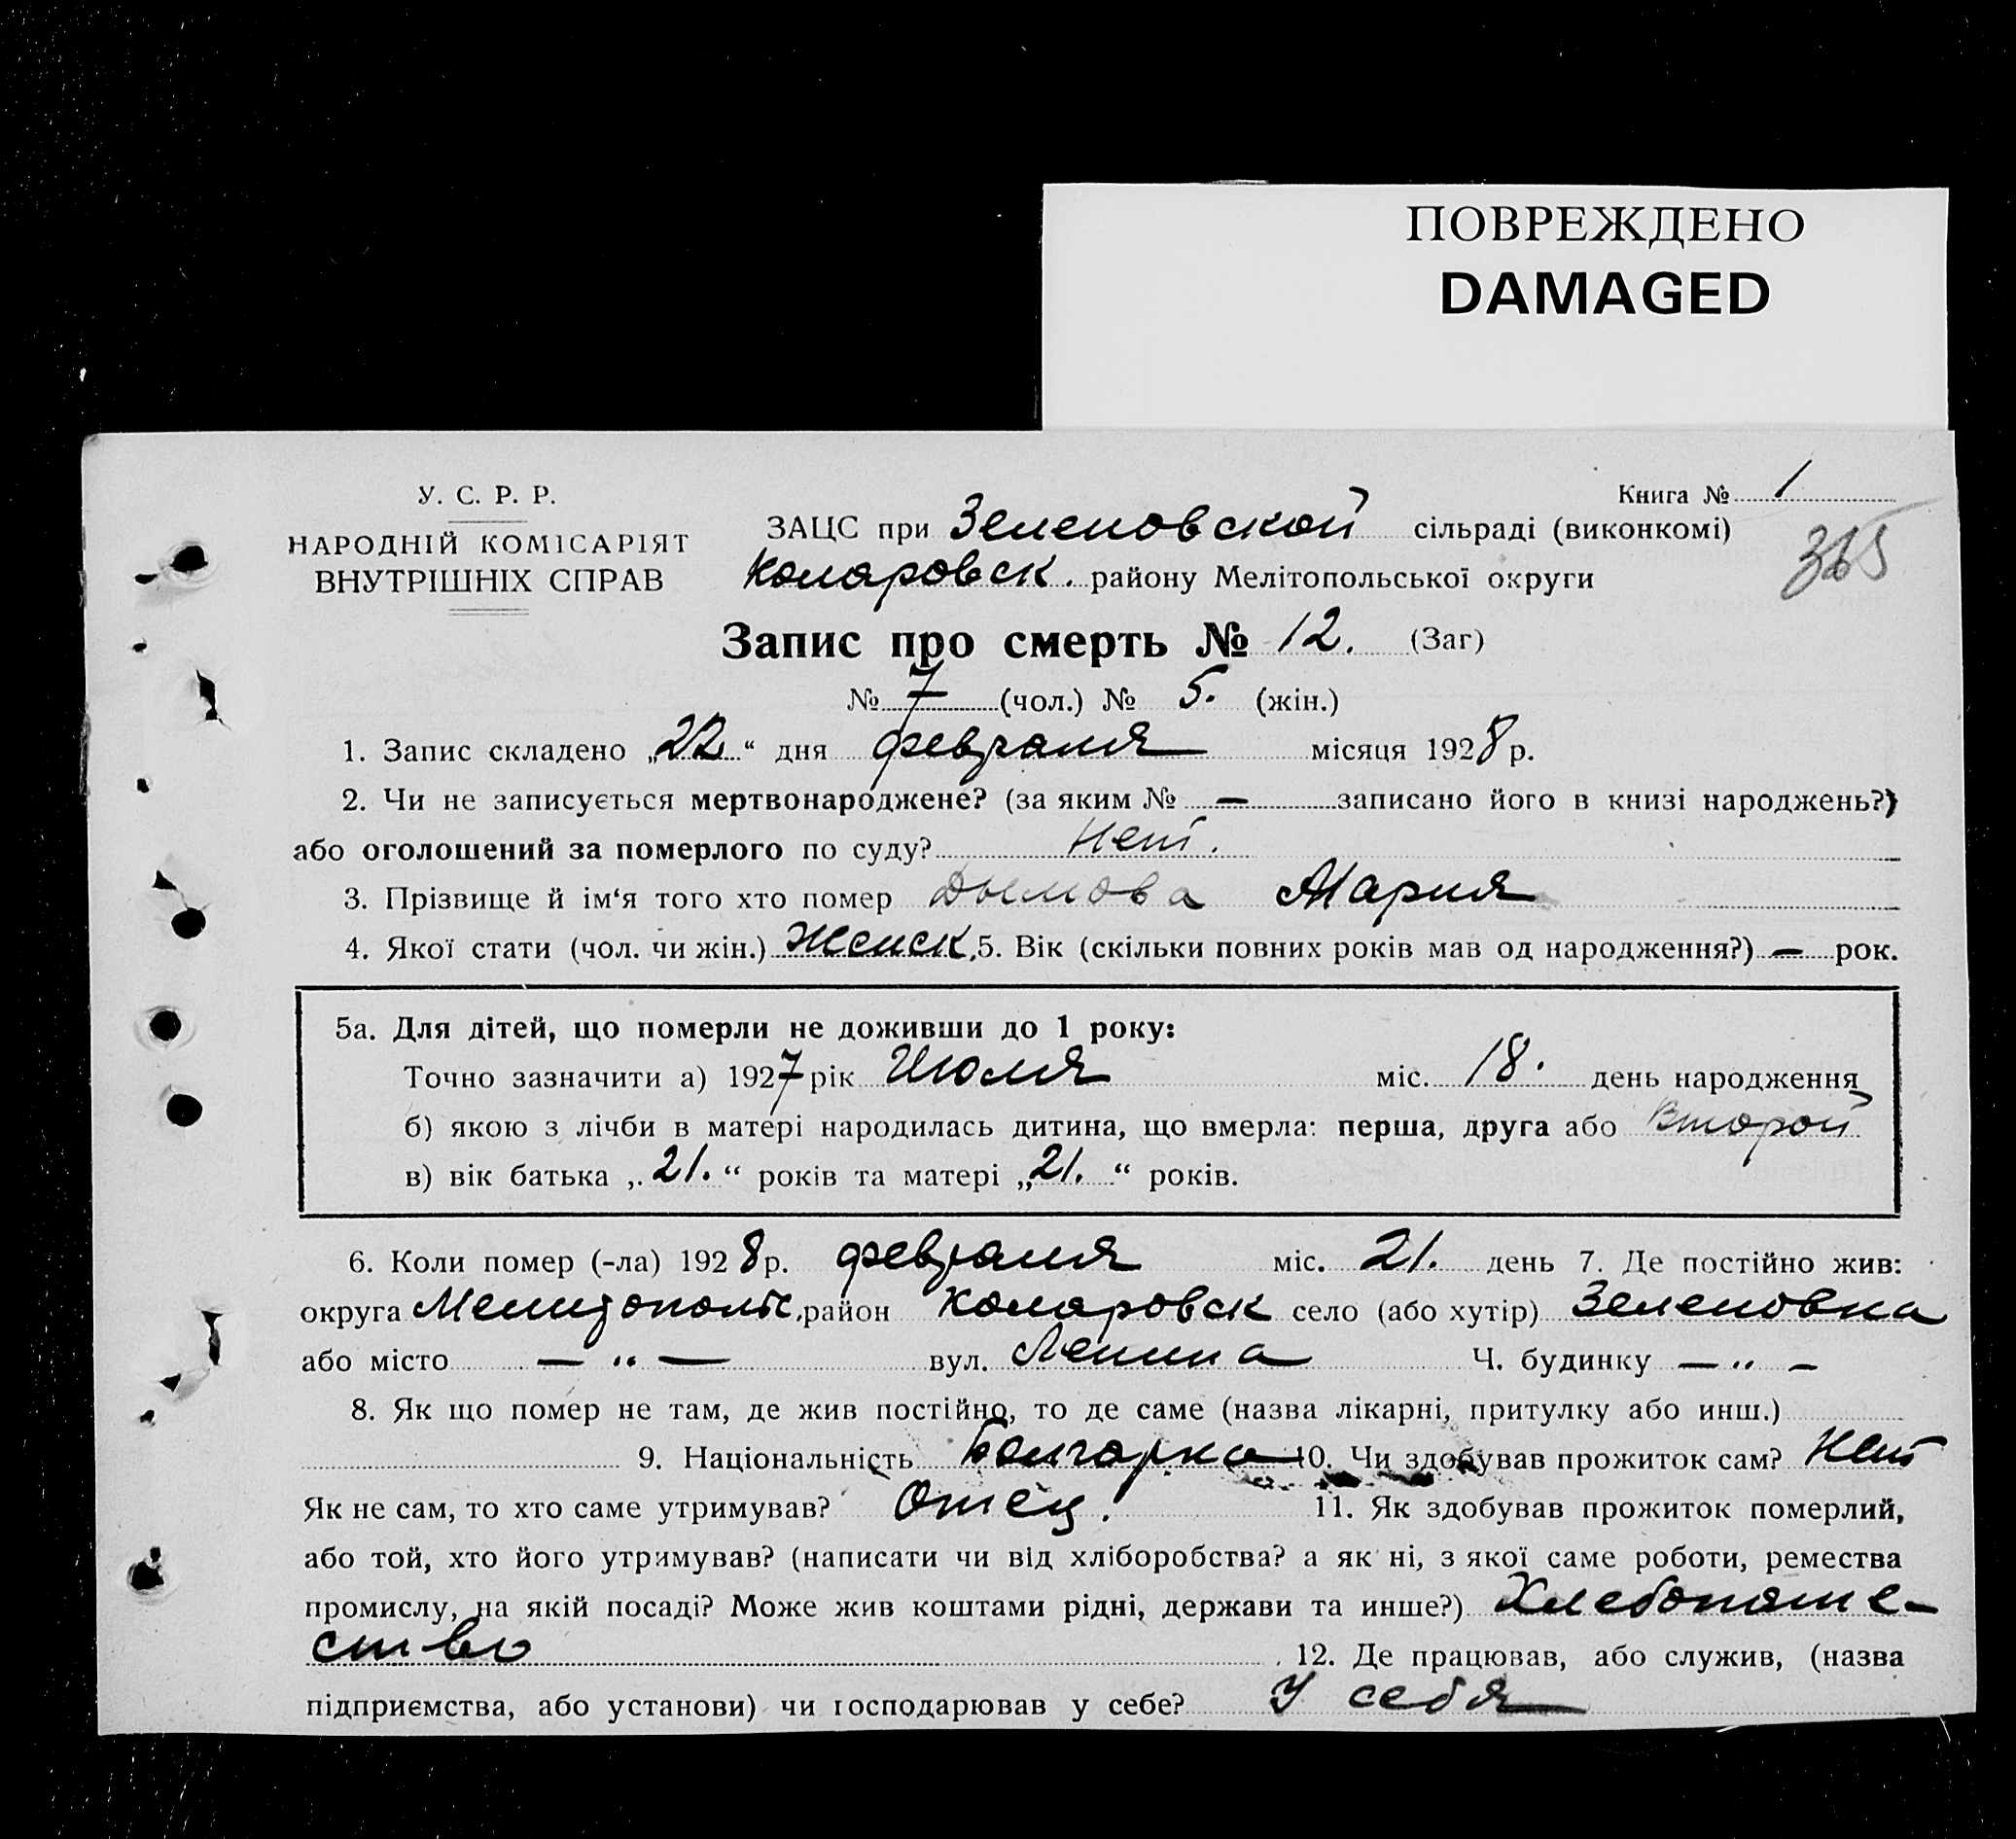 ПОВРЕЖДЕНО
DAMAGED
У. С. Р. Р.
НАРОДНІЙ КОМІСАРІЯТ
ВНУТРІШНІХ СПРАВ
Книга № 1
365
ЗАЦС при Зеленовской сільраді (виконкомі)
Коларовск. району Мелітопольської округи
Запис про смерть № 12. (Заг)
№ 7 (чол.) № 5. (жін.)
1. Запис складено „22“ дня февраля місяця 1928 р.
2. Чи не записується мертвонароджене? (за яким № — записано його в книзі народжень?)
або оголошений за померлого по суду? Нет.
3. Прізвище й ім‘я того хто помер Дымова Мария
4. Якої стати (чол. чи жін.) Женск. 5. Вік (скільки повних років мав од народження?) — рок.
5а. Для дітей, що померли не доживши до 1 року:
Точно зазначити а) 1927 рік Июля міс. 18. день народження
б) якою з лічби в матері народилась дитина, що вмерла: перша, друга або Второй
в) вік батька „21.“ років та матері „21.“ років.
6. Коли помер (-ла) 1928 р. февраля міс. 21. день 7. Де постійно жив:
округа Мелитополь. район Коларовск село (або хутір) Зеленовка
або місто — „ — вул. Ленина Ч. будинку — „ —
8. Як що помер не там, де жив постійно, то де саме (назва лікарні, притулку або инш.)
9. Національність Болгарка 10. Чи здобував прожиток сам? Нет
Як не сам, то хто саме утримував? Отец. 11. Як здобував прожиток померлий,
або той, хто його утримував? (написати чи від хліборобства? а як ні, з якої саме роботи, ремества
промислу, на якій посаді? Може жив коштами рідні, держави та инше?) Хлебопаше-
ство 12. Де працював, або служив, (назва
підприємства, або установи) чи господарював у себе? У себя